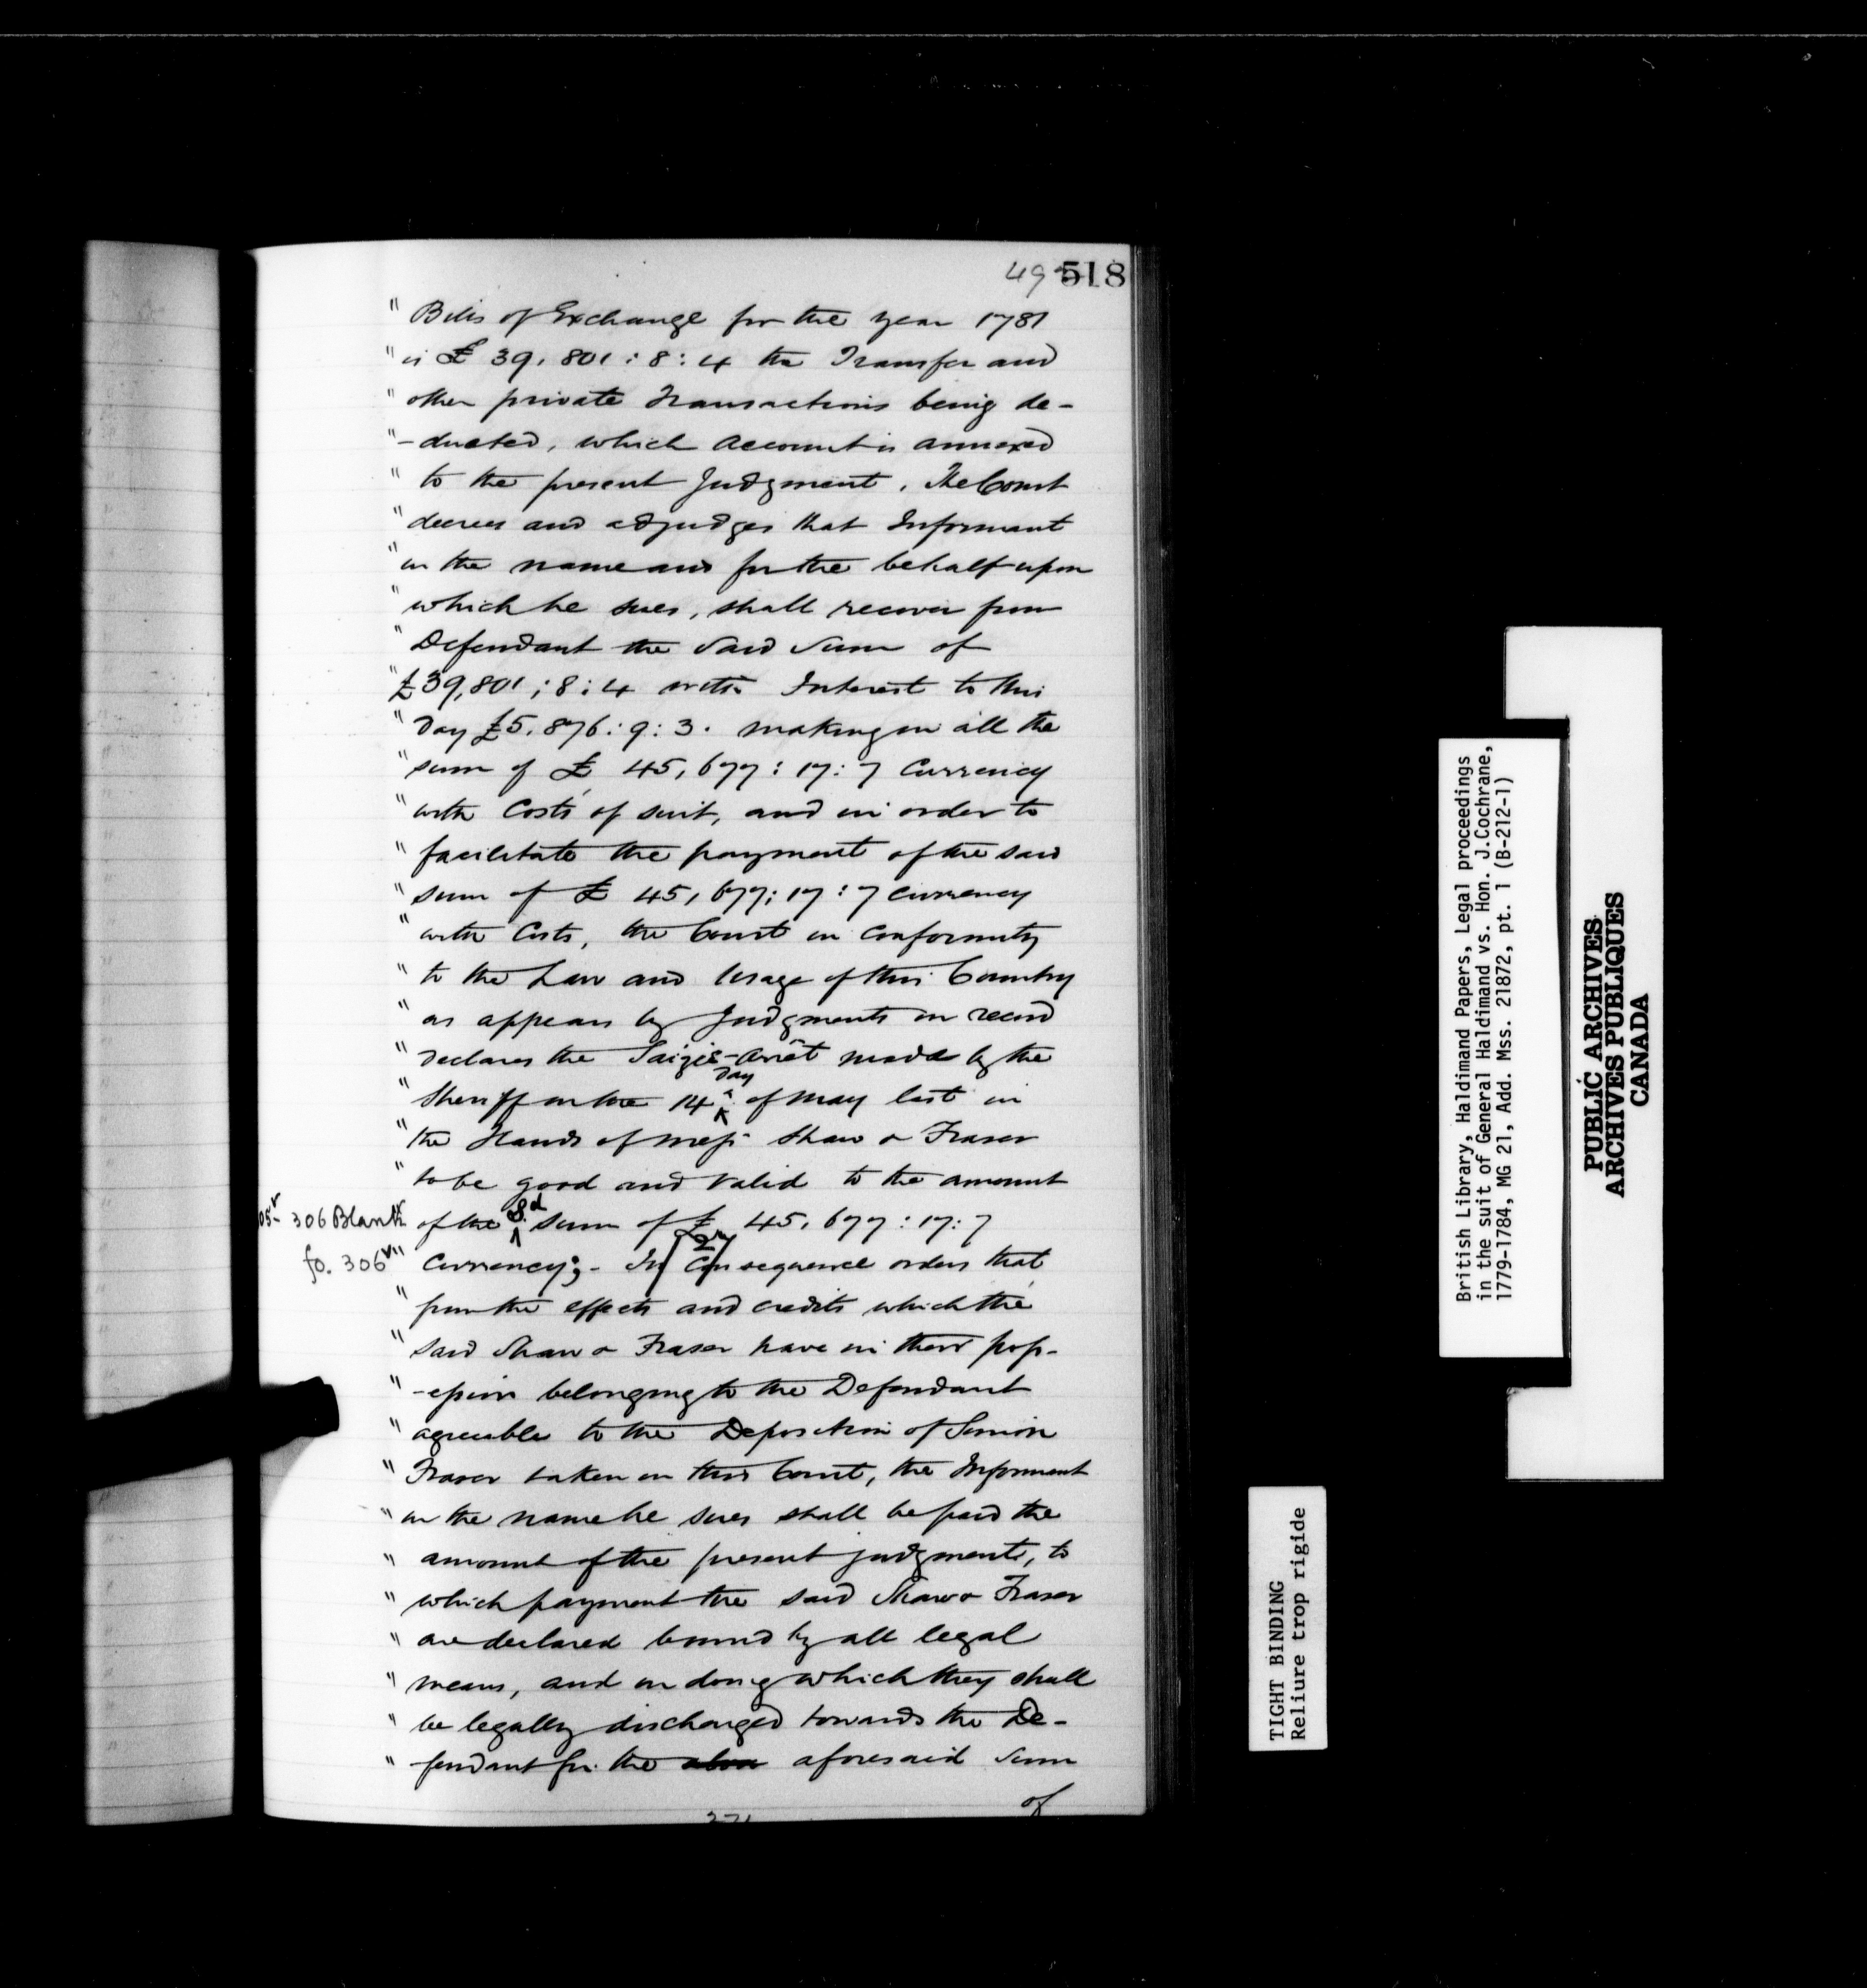 49 518
" Bills of Exchange for the year 1781
" is £ 39,801:8:4 the Transfer and
" other private Transactions being de-
"-ducted, which Account is annexed
" to the present Judgment. The Court
" decrees and adjudges that Informant
" in the name and for the behalf upon
" which he sues, shall recover from
" Defendant the Said Sum of
" £39,801;8:4 with Interest to this
" Day £5,876:9:3. making in all the
" sum of £ 45,677:17:7 Currency
" with Costs of suit, and in order to
" facilitate the payment of the said
" sum of £ 45,677:17:7 currency
" with Costs, the Court in Conformity
" to the Law and Usage of this Country
" as appears by Judgments on record
" Declares the Saizie-Arrêt made by the
" Sheriff on the 14 Day of May last in
" the Hands of Mess. Shaw & Fraser
" to be good and valid to the amount
05v - 306 Blank " of the Sd sum of £ 45,677:17:7
fo. 306v " Currency;- In Consequence orders that
" from the effects and credits which the
" said Shaw & Fraser have in their pos-
" -ession belonging to the Defendant
" agreeable to the Deposition of Simon
" Fraser taken in this Court, the Informant
" in the name he sues shall be paid the
" amount of the present judgment, to
" which payment the said Shaw & Fraser
" are declared bound by all legal
" means, and in doing which they shall
" be legally discharged towards the De-
" -fendant for the aforesaid Sum
of
British Library, Haldimand Papers, Legal proceedings
in the suit of General Haldimand vs. Hon. J.Cochrane,
1779-1784, MG 21, Add. Mss. 21872, pt. 1 (B-212-1)
PUBLIC ARCHIVES
ARCHIVES PUBLIQUES
CANADA
TIGHT BINDING
Reliure trop rigide